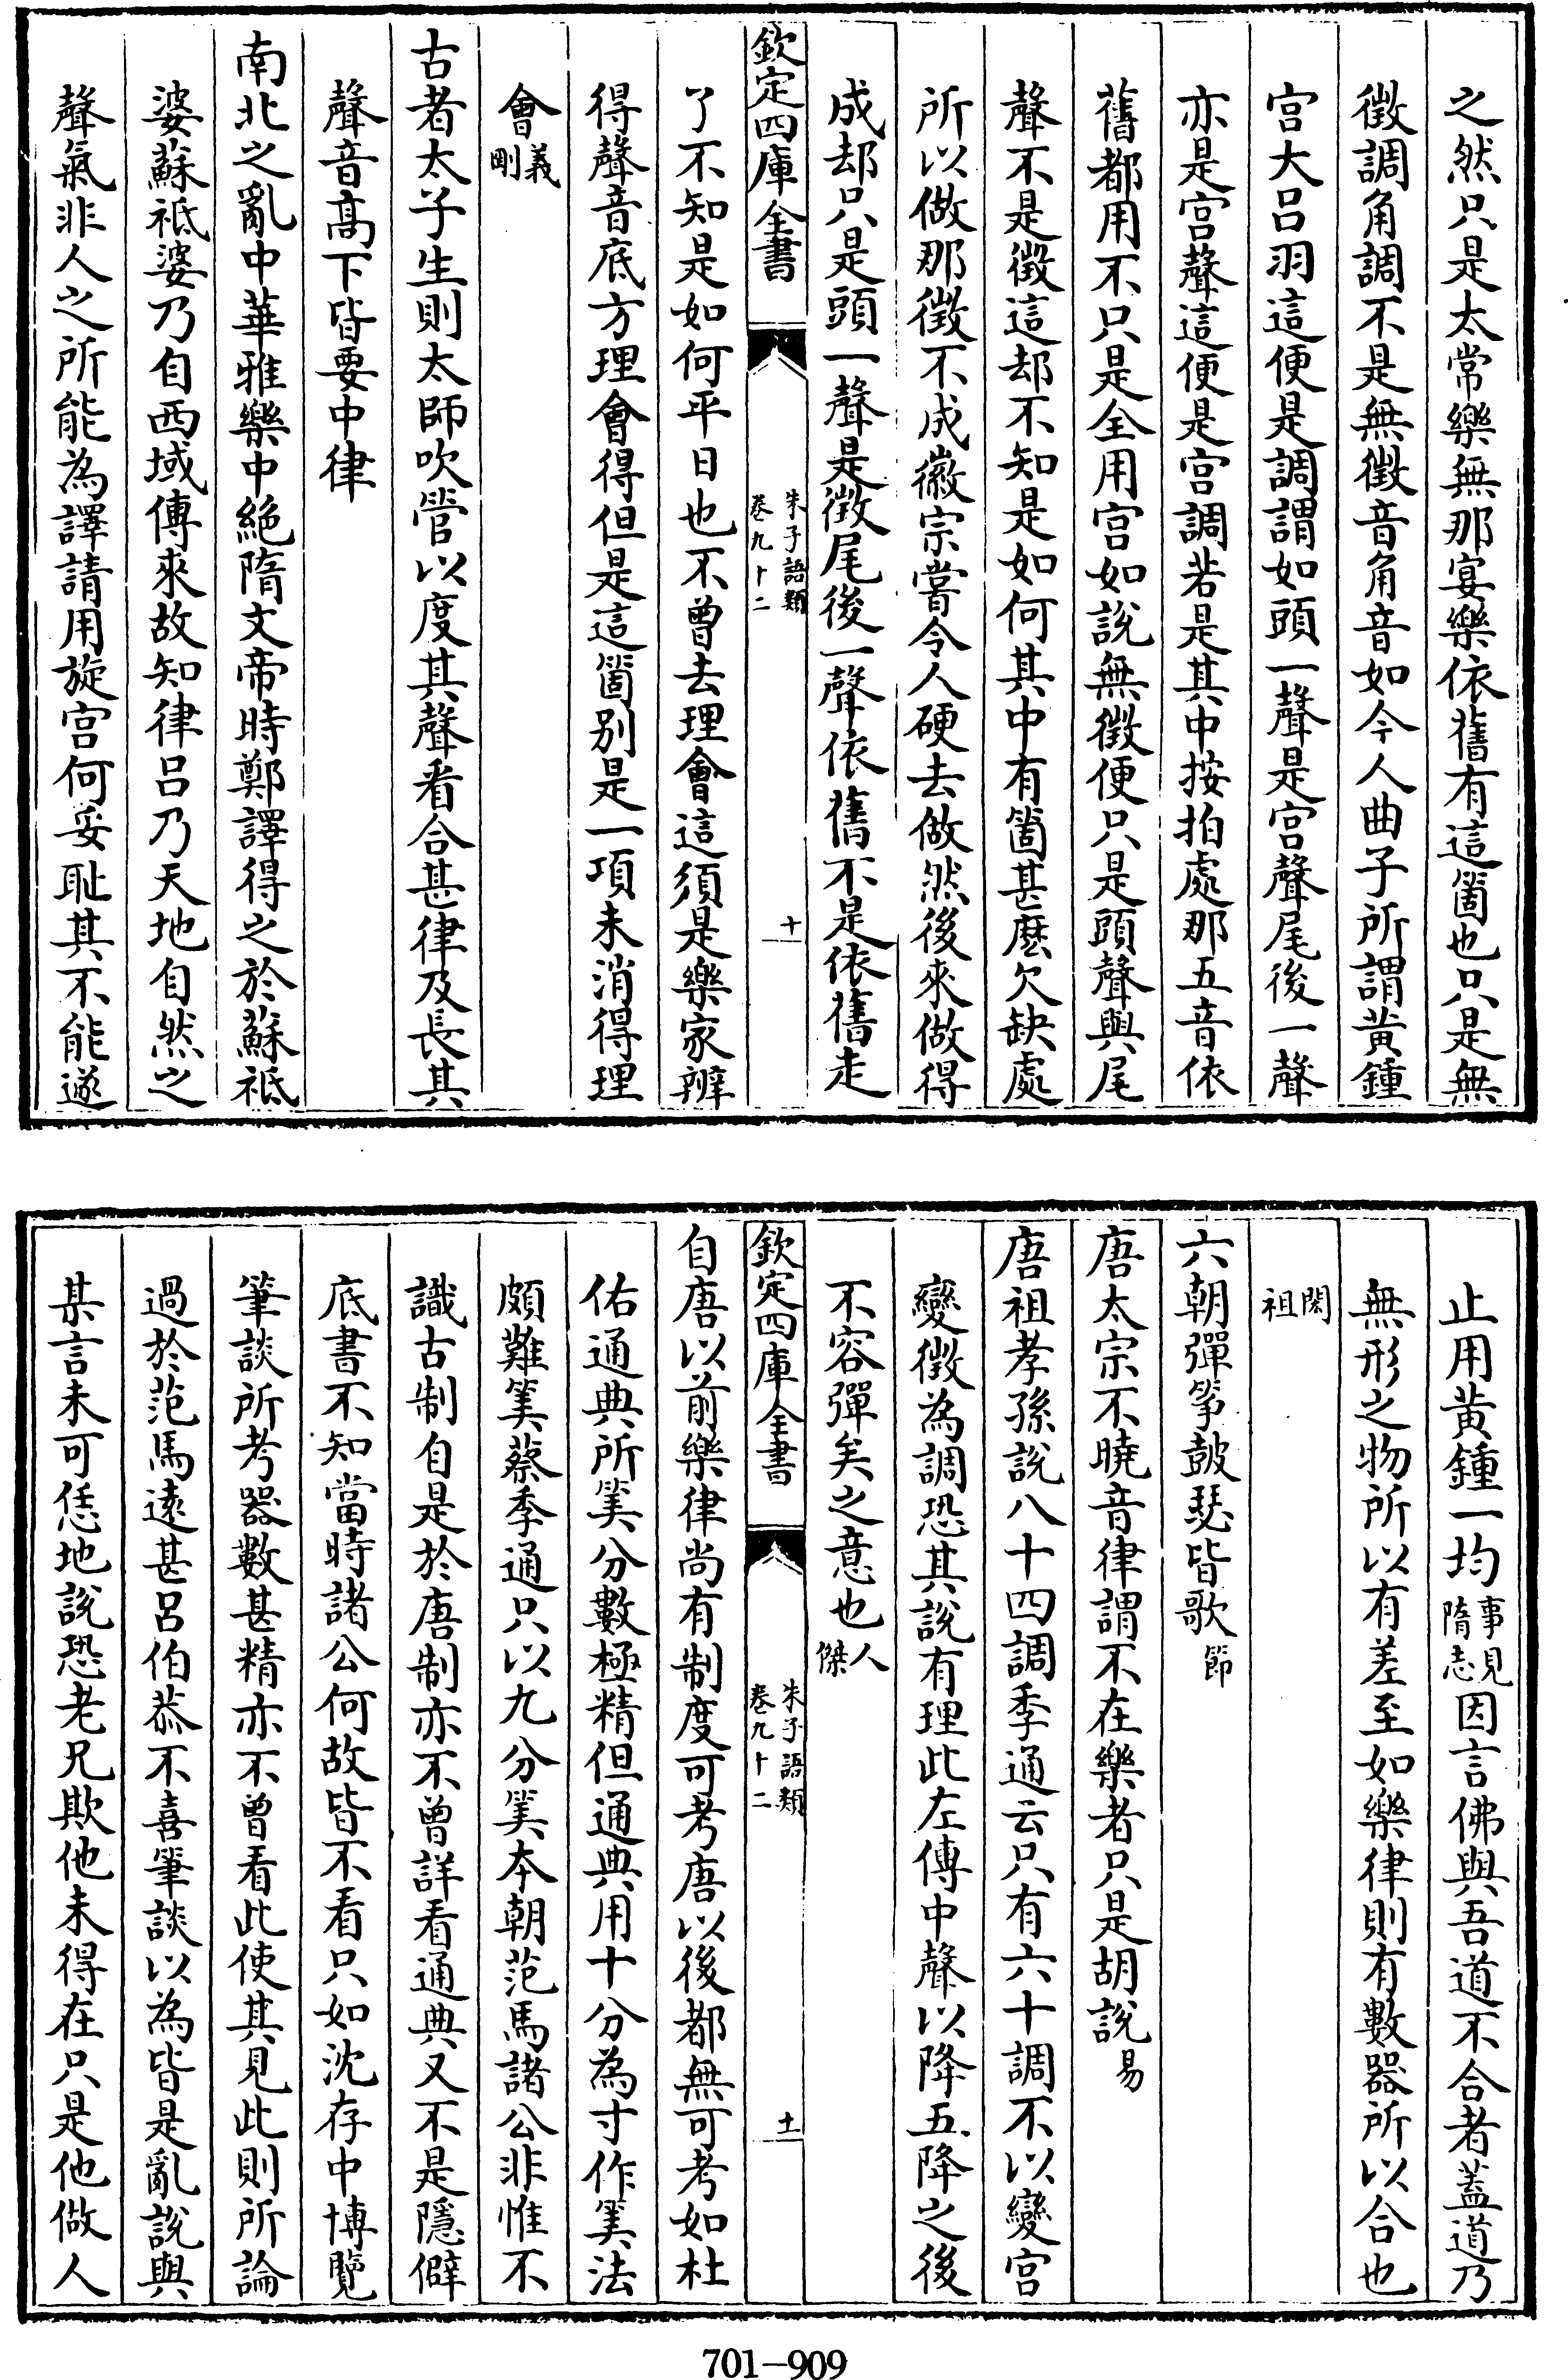 之然只是太常樂無那宴樂依舊有這箇也只是無
徵調角調不是無徵音角音如今人曲子所謂黃鍾
宫大吕羽這便是調謂如頭一聲是宫聲尾後一聲
亦是宫聲這便是宫調若是其中按拍處那五音依
舊都用不只是全用宫如說無徵便只是頭聲與尾
聲不是徵這却不知是如何其中有箇甚麽欠缺處
所以做那徵不成徽宗嘗令人硬去做然後來做得
成却只是頭一聲是徵尾後一聲依舊不是依舊走
欽定四庫全書
朱子語類
卷九十二
十
了不知是如何平日也不曾去理會這須是樂家辨
得聲音底方理會得但是這箇别是一項未消得理
會義剛
古者太子生則太師吹管以度其聲看合甚律及長其
聲音高下皆要中律
南北之亂中華雅樂中絶隋文帝時鄭譯得之於蘇祗
婆蘇祗婆乃自西域傳來故知律吕乃天地自然之
聲氣非人之所能為譯請用旋宫何妥恥其不能遂
止用黃鍾一均事見隋志因言佛與吾道不合者蓋道乃
無形之物所以有差至如樂律則有數器所以合也
閎祖
六朝彈箏鼓瑟皆歌節
唐太宗不曉音律謂不在樂者只是胡說易
唐祖孝孫說八十四調季通云只有六十調不以變宫
變徵為調恐其說有理此左傳中聲以降五降之後
不容彈矣之意也人傑
欽定四庫全書
朱子語類
卷九十二
十一
自唐以前樂律尚有制度可考唐以後都無可考如杜
佑通典所筭分數極精但通典用十分為寸作筭法
頗難筭蔡季通只以九分筭本朝范馬諸公非惟不
識古制自是於唐制亦不曾詳看通典又不是隱僻
底書不知當時諸公何故皆不看只如沈存中博覽
筆談所考器數甚精亦不曾看此使其見此則所論
過於范馬遠甚吕伯恭不喜筆談以為皆是亂說與
某言未可恁地說恐老兄欺他未得在只是他做人
701-909